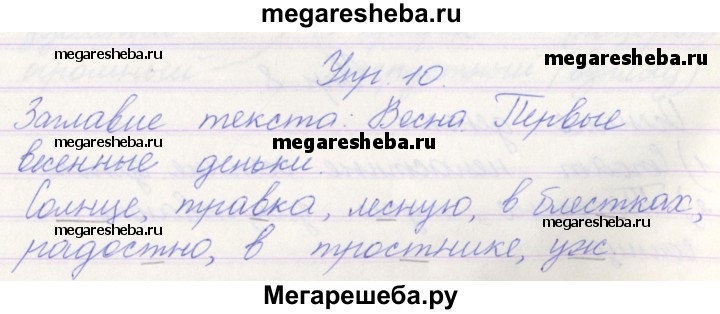 megaresheba.ru
megaresheba.ru
Упр. 10.
megaresheba.ru
Заглавие текста: Весна. Первые
megaresheba.ru
весенные деньки.
Солнце, травка, лесную, в блестках,
megaresheba.ru
megaresheba.ru
радостно, в тростнике, уж.
Мегарешеба.ру